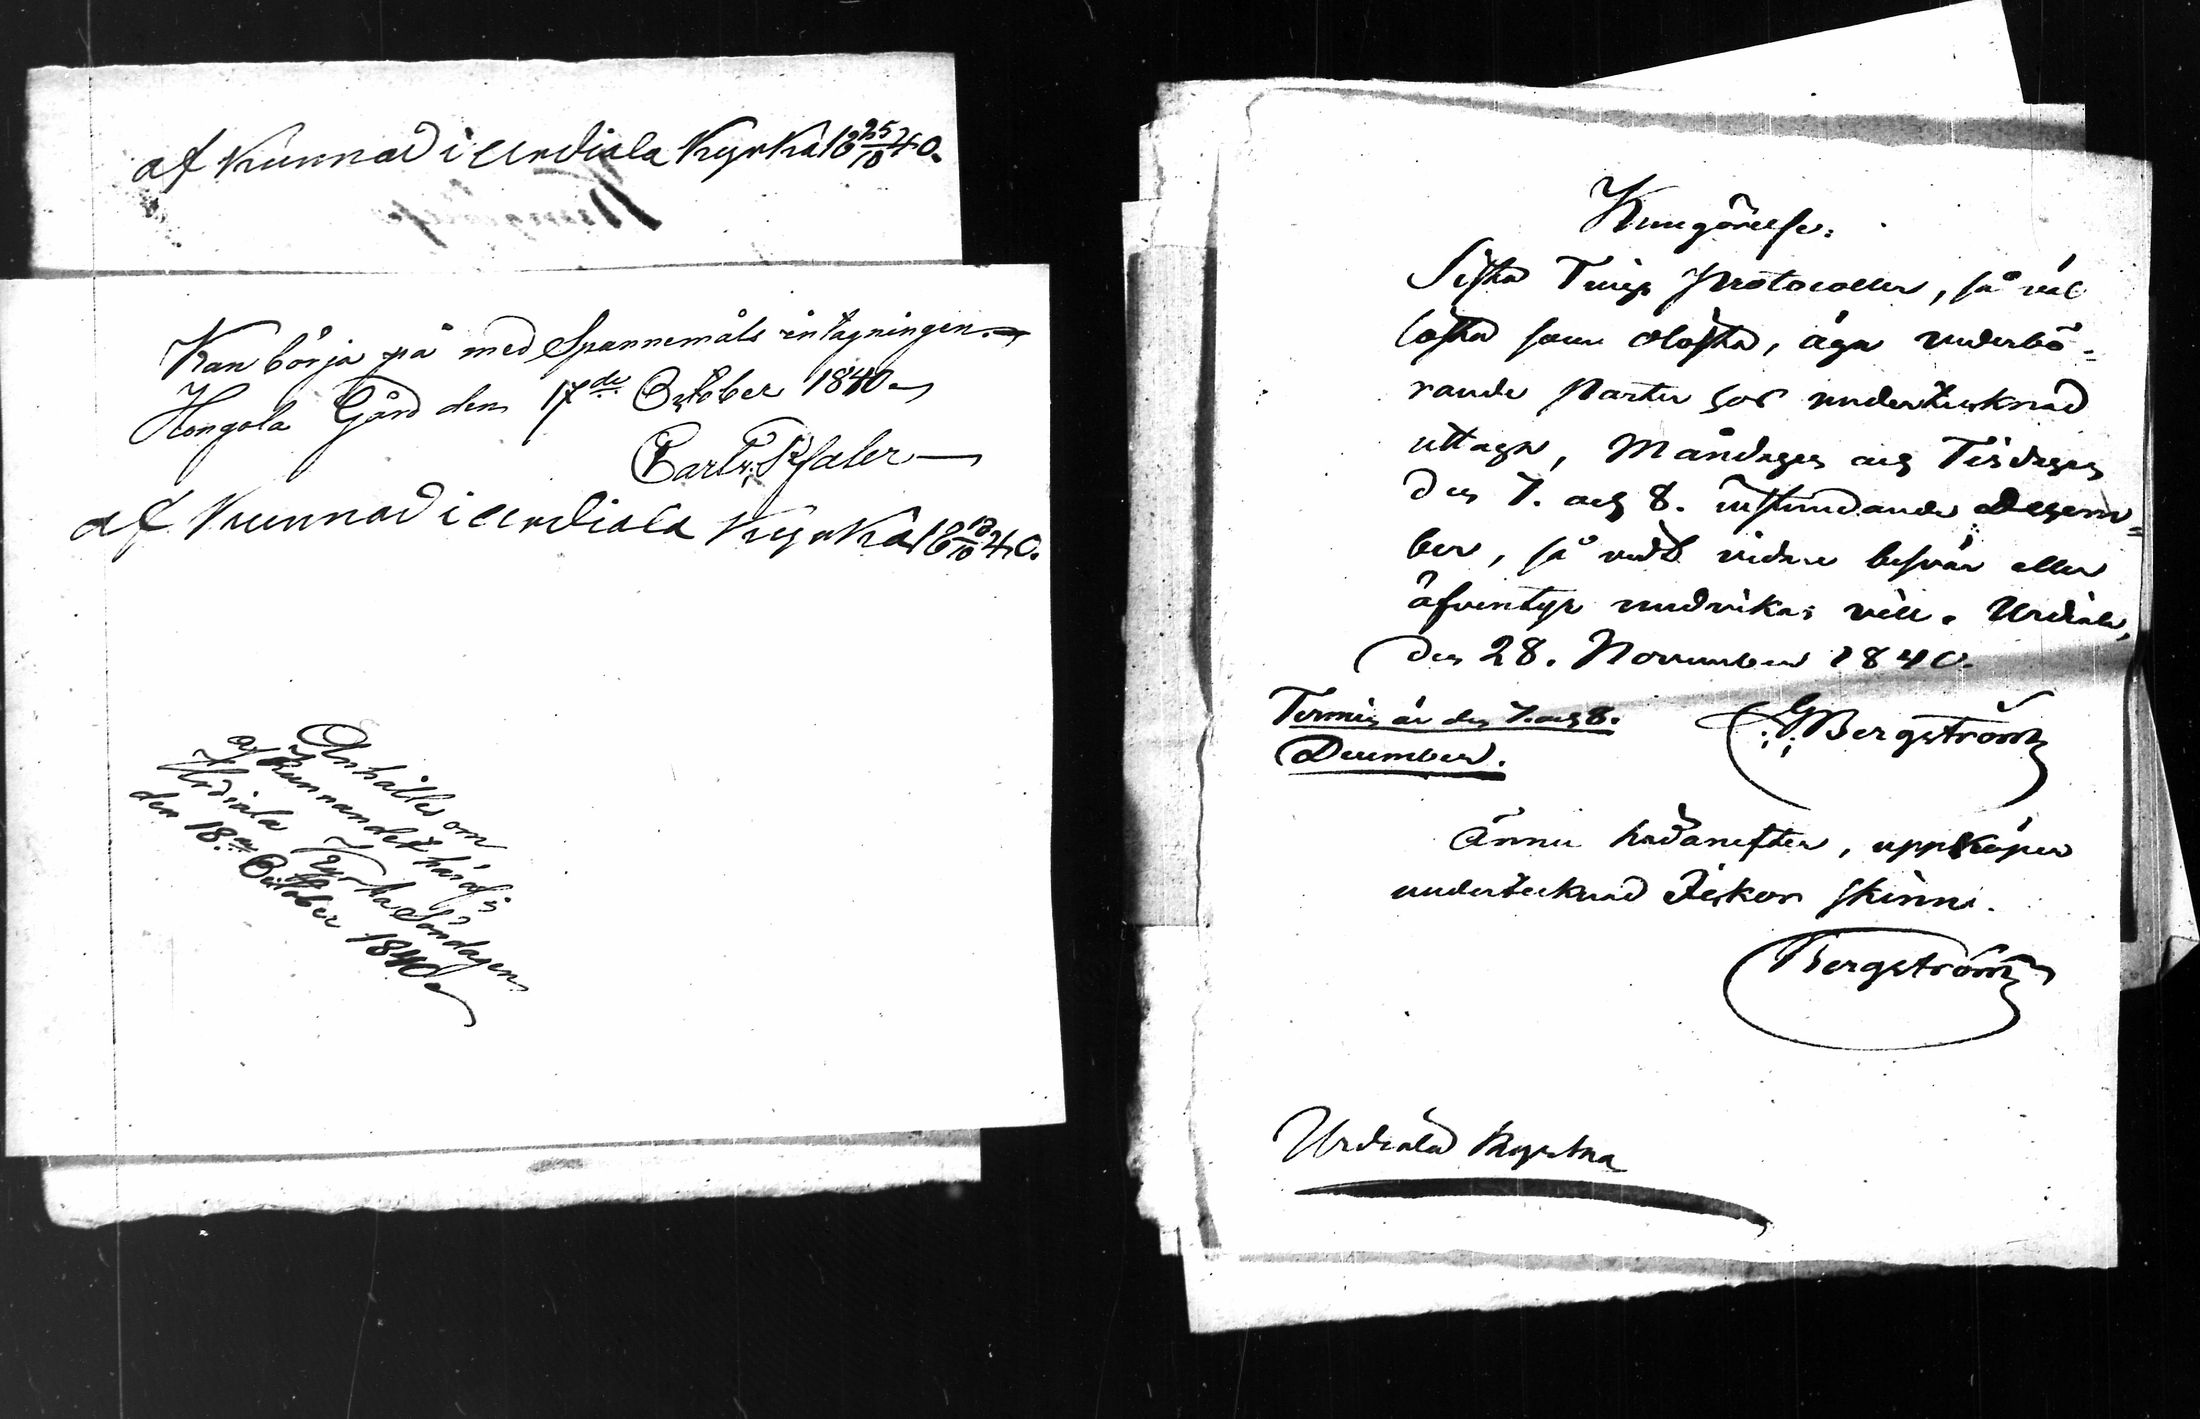 af Kunnad i Urdiala Kyrka 18 25/10 40.
Kan börja på med Spannemåls intagningen.
Hongola Gård den 17de October 1840
Carl
af Kunnad i Urdiala Kyrka 18 18/10 40.
Anhålles om
af Kunnandet häraf i
Urdiala Kyrka Söndagen
den 18de October 1840
Kungörelse.
Sista Tings Protocoller, så väl
lösta som olösta, äga vederbö-
rande Parter hos undertecknad
uttaga, Måndagen och Tisdagen
den 7. och 8. instundande Decem-
ber, så vidt vidare besvär eller
äfventyr undvikas vill. Urdiala,
den 28. November 1840.
Termin är den 7. och 8.
December.
Bergström
Ännu hädanefter, uppköper
undertecknad skinn.
Bergström
Urdiala Kyrka